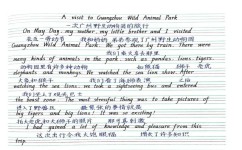 A visit to Guangzhou Wild Animal Park
一次广州野生动物园的旅行
On May Day, my mother, my little brother and I visited
在五一劳动节 我和妈妈 弟弟参观了广州野生动物园
Guangzhou Wild Animal Park. We got there by train. There were
我们坐火车去那里
many kinds of animals in the park, such as pandas, lions, tigers,
动物园里有许多种动物 如熊猫 狮子 老虎
elephants and monkeys. We watched the sea lion show. After
大象和猴子 我们看了海狮表演
watching the sea lions, we took a sightseeing bus and entered
the beast zone. The most exciting thing was to take pictures of
最
big tigers and big lions! It was so exciting!
I had gained a lot of knowledge and pleasure from this
这次出行令我
trip.